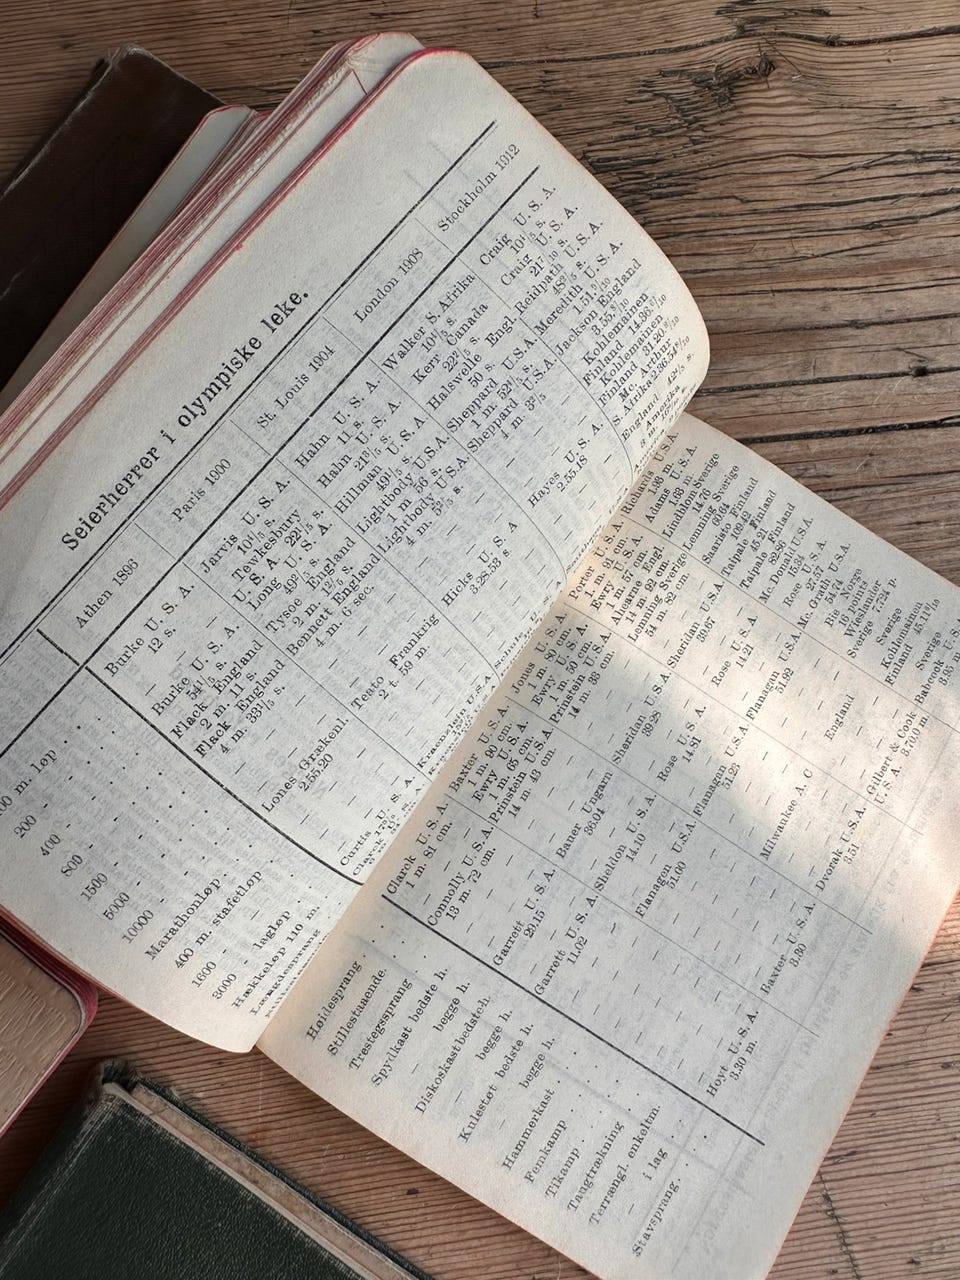 Seierherrer i olympiske leke.
Athen 1896 Paris 1900 St. Louis 1904 London 1908 Stockholm 1912
00 m. løp . . Burke U. S. A. Jarvis U. S. A. Hahn U. S. A. Walker S. Afrika Craig U. S. A.
12 s. 10⁴/₅ s. 11 s. 10⁴/₅ s. 10⁴/₅ s.
200 — Tewkesbury Hahn U. S. A. Kerr Canada Craig U. S. A.
— U. S. A. 22¹/₅ s. 21³/₅ s. 22²/₅ s. 21⁷/₁₀ s.
400 Burke U. S. A. Long U. S. A. Hillman U. S. A. Halswelle Engl. Reidpath U. S. A.
54¹/₅ s. 49²/₅ s. 49¹/₅ s. 50 s. 48²/₅ s.
800 Flack England Tysoe England Lightbody U.S.A. Sheppard U.S.A. Meredith U. S. A.
2 m. 11 s. 2 m. 1²/₅ s. 1 m. 56 s. 1 m. 52⁴/₅ s. 1.51.⁹/₁₀
1500 Flack England Bennett England Lightbody U.S.A. Sheppard U.S.A. Jackson England
4 m. 33¹/₅ s. 4 m. 6 sec. 4 m. 5²/₅ s. 4 m. 3²/₅ 3.55.⁸/₁₀
5000 — — — — Kohlemainen
Finland 14.36.⁶/₁₀
10000 — — — — Kolemainen
Finland 31.20.⁸/₁₀
Marathonløp. Lones Grækenl. Teato Frankrig Hicks U. S. A Hayes U. S. A. Mc. Arthur
2.55.20 2 t. 59 m. 3.28.53 s 2.55.18 S. Afrika
400 m. stafetløp — — — — England 42⁴/₅ s.
1600 — — Amerika
3000 - lagløp .
Hækkeløp 110 m. Curtis U. S. A. Kraenzlein U.S.A.
Længdesprang Clarck
Høidesprang . Clarck U. S. A. Baxter U. S. A. Jones U. S. A. Porter U. S. A. Richards U. S. A.
1 m. 81 cm. 1 m. 90 cm. 1 m. 80 cm. 1 m. 91 cm. 1.93 m.
Stillestaaende. — Ewry U. S. A. Ewry U. S. A. Ewry U. S. A. Adams U. S. A.
— 1 m. 65 cm. 1 m. 50 cm. 1 m. 57 cm. 1.63 m.
Trestegssprang Connolly U. S. A. Prinstein U.S.A. Prinstein U.S.A. Ahearne Engl. Lindblom Sverige
13 m. 72 cm. 14 m. 43 cm. 14 m. 33 cm. 14 m. 92 cm. 14.76
Spydkast bedste h. — — — Lemming Sverige Lemming Sverige
54 m. 82 cm. 60.64
— begge h. — — — — Saaristo Finland
109.42
Diskoskast bedste h. Garrett U. S. A. Bauer Ungarn Sheridan U. S. A. Sheridan U. S. A Taipale Finland
29.15 36.04 39.28 39.67 45.21
— begge h. — — — — Taipale Finland
82.86
Kulestøt bedste h. Garrett U. S. A. Sheldon U. S. A. Rose U. S. A. Rose U. S. A. Mc. Donald U.S.A.
11.02 14.10 14.81 14.21 15.34
— begge h. — — — — Rose U. S. A.
27.57
Hammerkast . — Flanagen U.S.A. Flanagan U.S.A. Flanagan U.S.A. Mc. Grath U. S. A.
51.00 51.23 51.92 54.74
Femkamp . — — — — Bie Norge
16 points
Tikamp . — — — — Wieslander
Sverige 7.724 p.
Taugtrækning — — Milwaukee A. C England Sverige
Terrængl. enkeltm. — — — — Kohlemainen
Finland 45.11⁶/₁₀
— i lag — — — — Sverige
Stavsprang . Hoyt U. S. A. Baxter U. S. A. Dvorak U. S. A. Gilbert & Cook Babcock U. S. A.
3.30 m. 3.30 3.51 U. S. A. 3.70,9 m. 3.95 m.